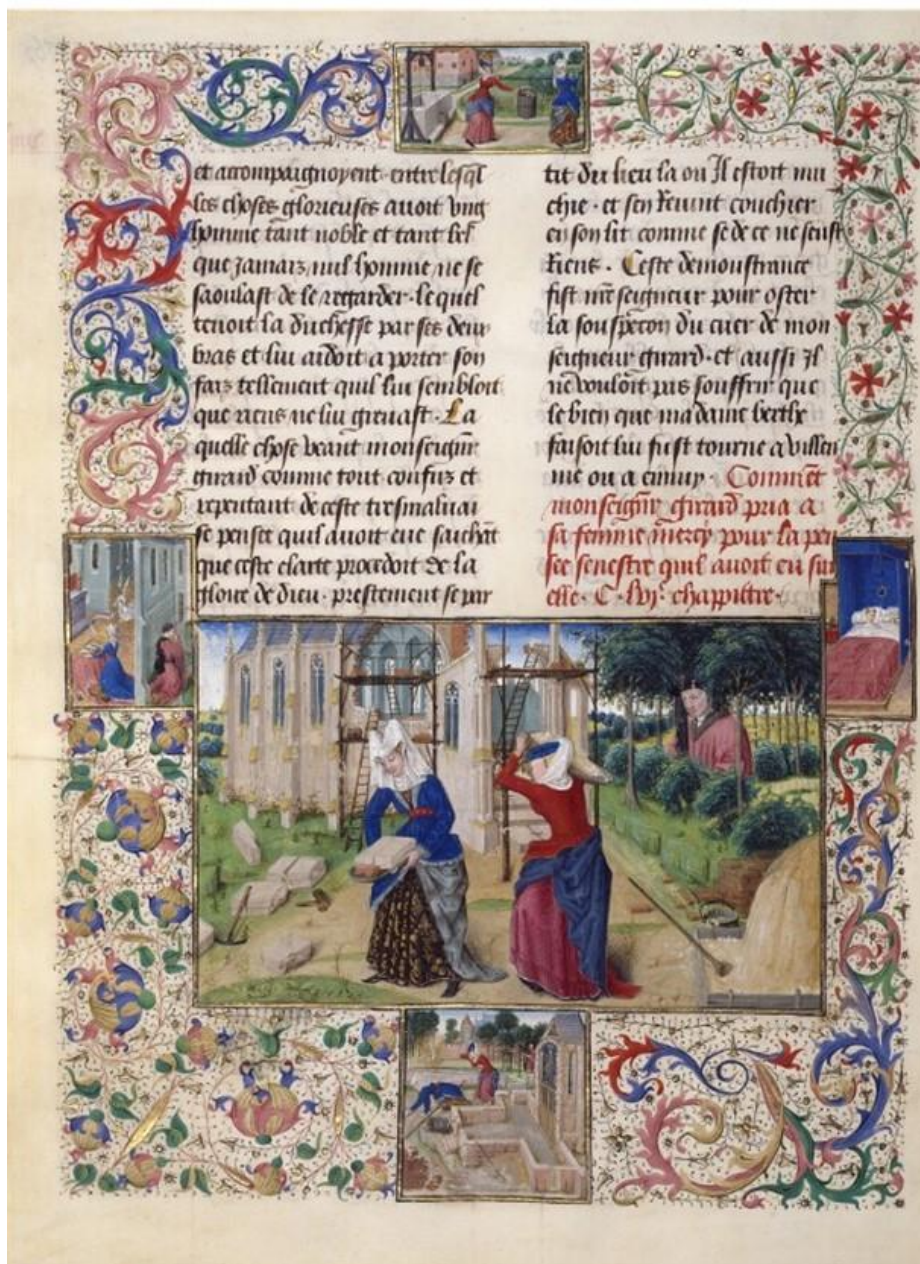 et acompaignoyent. entre lesqlx
les choses glorieuses avoit ung
homme tant noble et tant bel
que jamais nul homme ne se
saoulast de le regarder. le quel
tenoit la duchesse par ses deux
bras et lui aidoit a porter son
fais tellement quil lui sembloit
que riens ne lui grevast. La
quelle chose veant monseignr
girard comme tout confus et
repentant de ceste tresmalvai
se pensee quil avoit eue saichãt
que ceste clarte procedoit de la
gloire de dieu. prestement se par
tit du lieu la ou Il estoit mu
chie. et sen Revint couchier
en son lit comme se de ce ne seust
Riens. Ceste demoustrance
fist nre seigneur pour oster
la souspecon du cuer de mon
seigneur girard. et aussi Il
ne vouloit pas souffrir que
le bien que madame berthe
faisoit lui fust tourne a villen
nie ou a ennuy. Commẽt
monseignr girard pria a
sa femme mercy pour la pen
see senestre quil avoit eu sur
elle. C. lvj. chappitre.